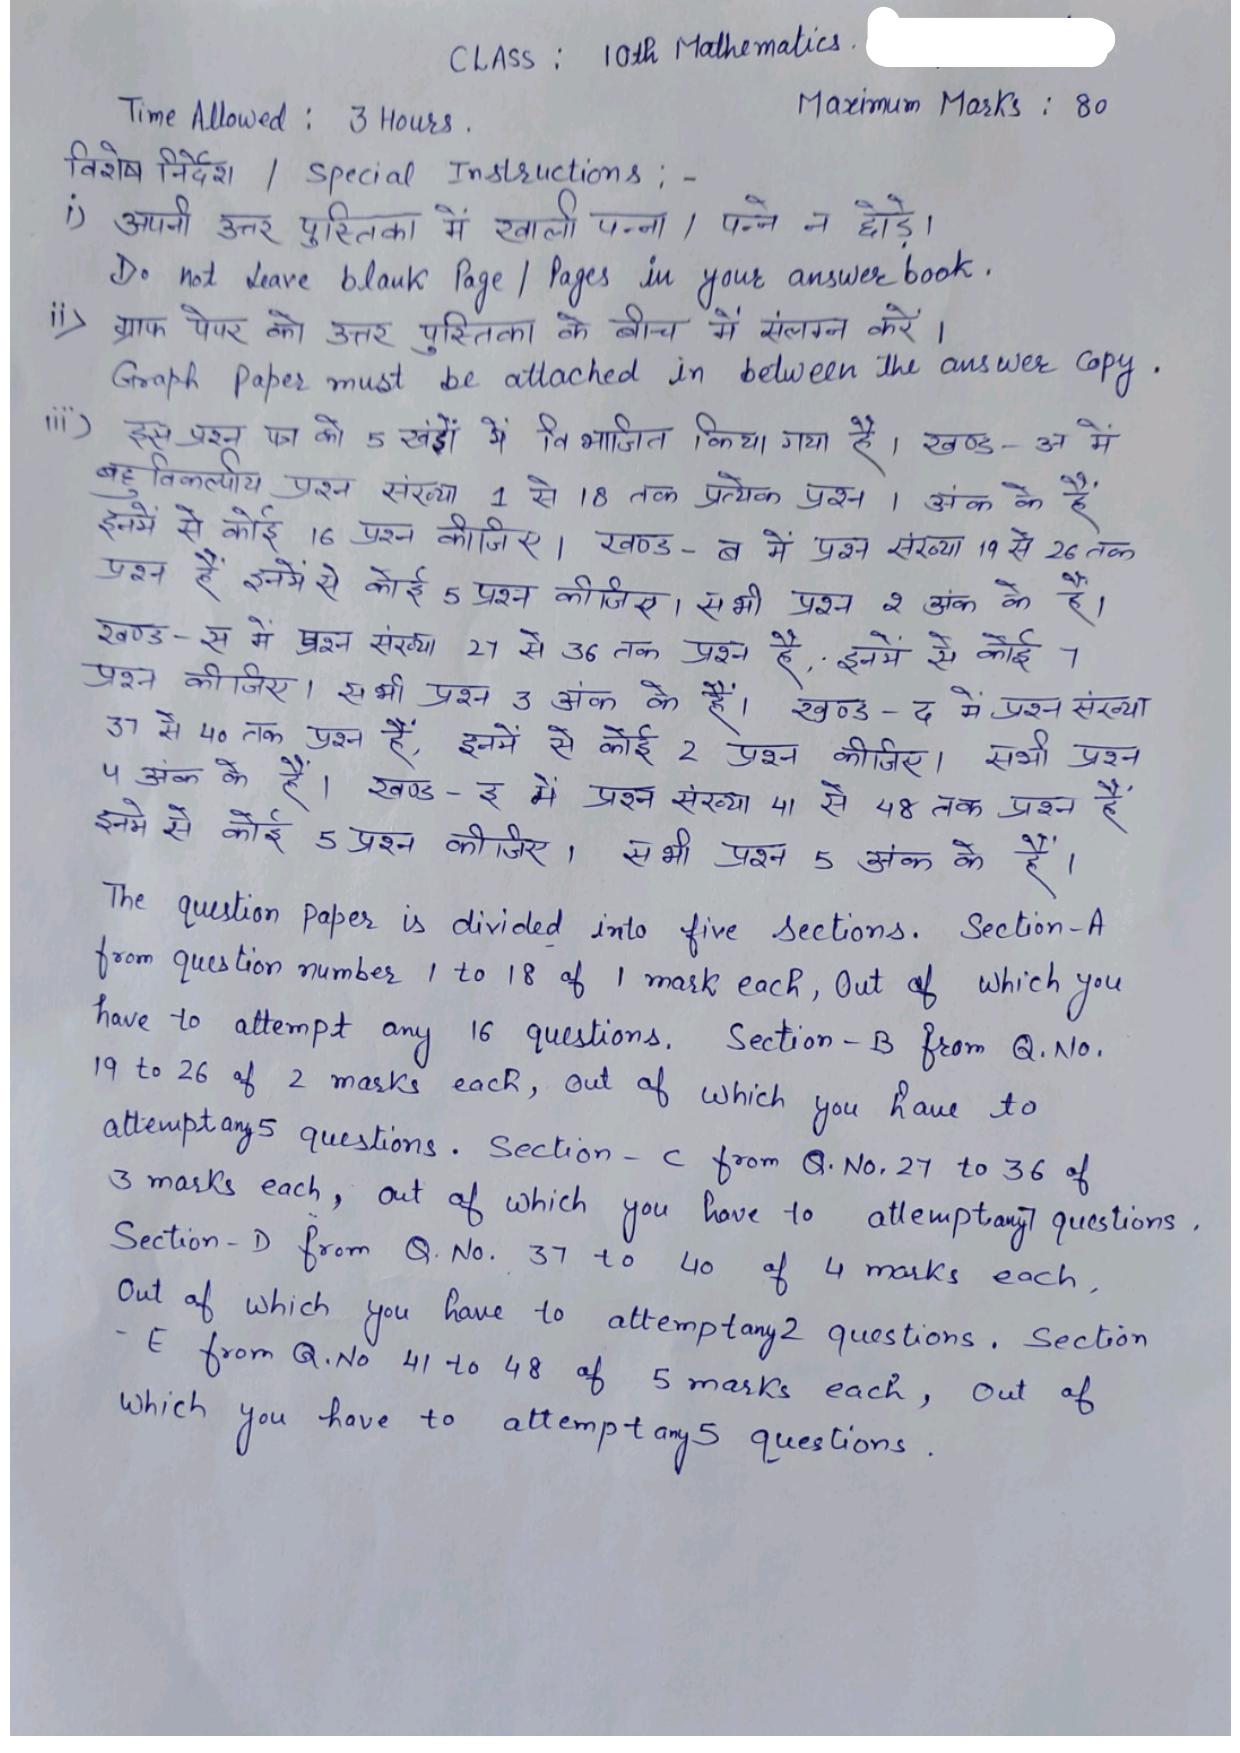 CLASS : 10th Mathematics.
Time Allowed : 3 Hours.
Maximum Marks : 80
विशेष निर्देश / Special Instructions : -
i) अपनी उत्तर पुस्तिका में खाली पन्ना / पन्ने न छोड़े।
Do not Leave blank Page / Pages in your answer book.
ii) ग्राफ पेपर को उत्तर पुस्तिका के बीच में संलग्न करें।
Graph Paper must be attached in between the answer Copy.
iii) इस प्रश्न पत्र को 5 खंडों में विभाजित किया गया है। खण्ड - अ में
बहु विकल्पीय प्रश्न संख्या 1 से 18 तक प्रत्येक प्रश्न 1 अंक के हैं
इनमें से कोई 16 प्रश्न कीजिए। खण्ड - ब में प्रश्न संख्या 19 से 26 तक
प्रश्न हैं इनमें से कोई 5 प्रश्न कीजिए। सभी प्रश्न 2 अंक के हैं।
खण्ड - स में प्रश्न संख्या 27 से 36 तक प्रश्न है, इनमें से कोई 7
प्रश्न कीजिए। सभी प्रश्न 3 अंक के हैं। खण्ड - द में प्रश्न संख्या
37 से 40 तक प्रश्न हैं, इनमें से कोई 2 प्रश्न कीजिए। सभी प्रश्न
4 अंक के हैं। खण्ड - इ में प्रश्न संख्या 41 से 48 तक प्रश्न हैं
इनमे से कोई 5 प्रश्न कीजिए। सभी प्रश्न 5 अंक के हैं।
The question paper is divided into five sections. Section-A
from question number 1 to 18 of 1 mark each, Out of which you
have to attempt any 16 questions. Section - B from Q.No.
19 to 26 of 2 marks each, out of which you have to
attempt any 5 questions. Section - C from Q. No. 27 to 36 of
3 marks each, out of which you have to attempt any 7 questions.
Section - D from Q. No. 37 to 40 of 4 marks each,
Out of which you have to attempt any 2 questions. Section
- E from Q.No 41 to 48 of 5 marks each, out of
which you have to attempt any 5 questions.